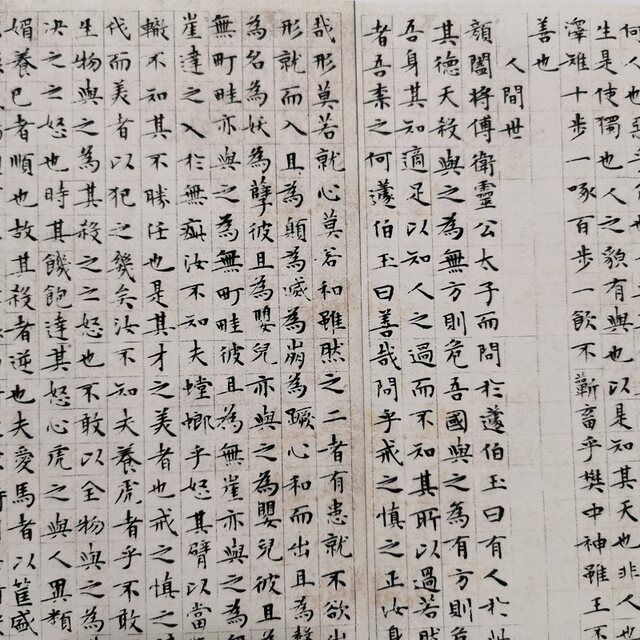 何人也
生是使獨也人之貌有與也以是知其天也非人也
澤雉十步一啄百步一飲不蘄畜乎樊中神雖王不
善也
人間世
顏闔將傅衛靈公太子而問於蘧伯玉曰有人於此
其德天殺與之為無方則危吾國與之為有方則危
吾身其知適足以知人之過而不知其所以過若然
者吾柰之何蘧伯玉曰善哉問乎戒之慎之正汝身
哉形莫若就心莫若和雖然之二者有患就不欲
形就而入且為顛為滅為崩為蹶心和而出且為聲
為名為妖為孽彼且為嬰兒亦與之為嬰兒彼且
無町畦亦與之為無町畦彼且為無崖亦與之為
崖達之入於無疵汝不知夫螳螂乎怒其臂以當
轍不知其不勝任也是其才之美者也戒之慎之
代而美者以犯之幾矣汝不知夫養虎者乎不敢
生物與之為其殺之之怒也不敢以全物與之為
決之之怒也時其饑飽達其怒心虎之與人異類
媚養己者順也故其殺者逆也夫愛馬者以筐盛